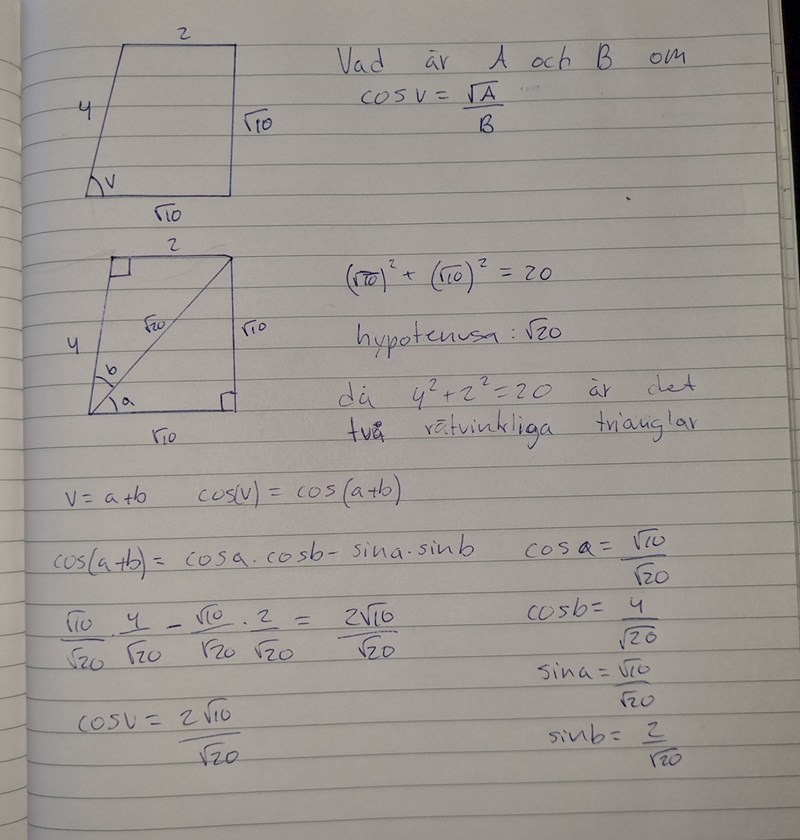 2
4
√10
v
√10
Vad är A och B om
cos v = √A/B
2
4
√20
√10
b
a
√10
(√10)² + (√10)² = 20
hypotenusa : √20
då 4² + 2² = 20 är det
två rätvinkliga trianglar
v = a+b cos(v) = cos(a+b)
cos(a+b) = cosa · cosb - sina · sinb
√10/√20 · 4/√20 - √10/√20 · 2/√20 = 2√10/√20
cosv = 2√10/√20
cos a = √10/√20
cosb = 4/√20
sina = √10/√20
sinb = 2/√20